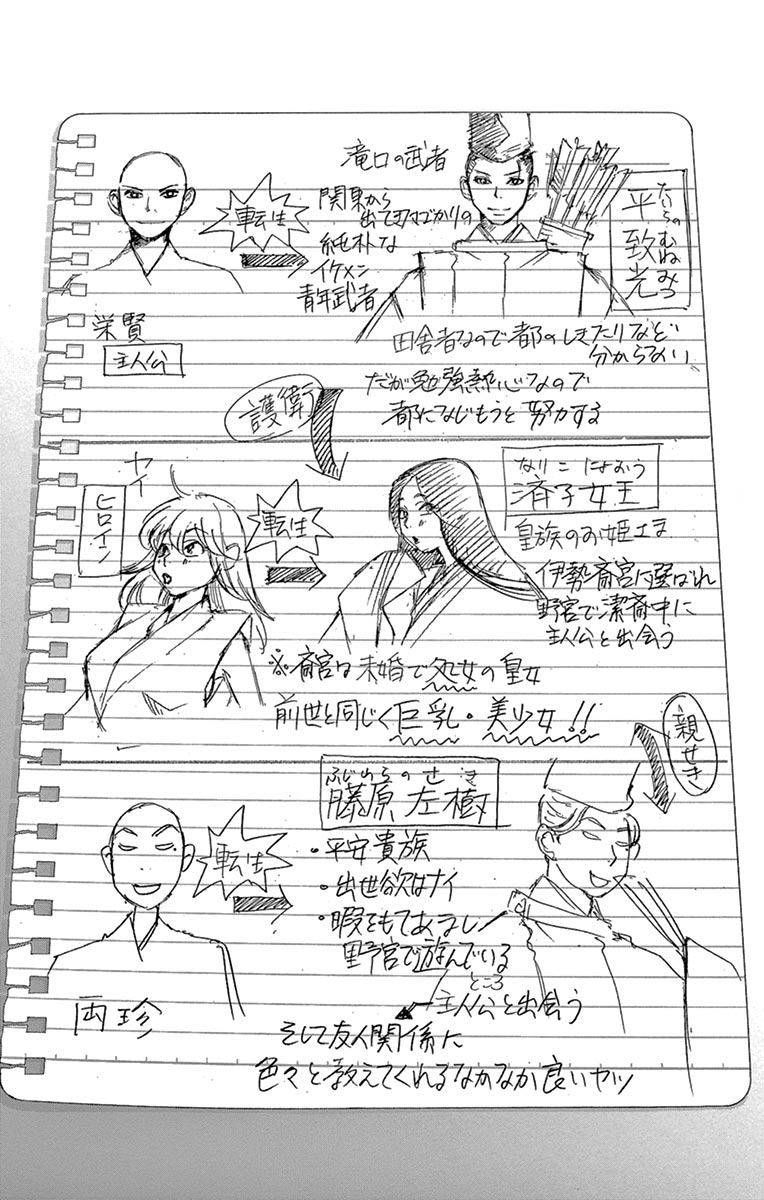 滝口の武者
たいらの むねみつ
平 致光
転生
関東から
出て来たばかりの
純朴な
イケメン
青年武者
栄賢
主人公
田舎者なので都のしきたりなど
分からない
だが勉強熱心なので
都になじもうと努力する
護衛
ヤイ
ヒロイン
転生
なりこ にょおう
済子女王
皇族のお姫さま
伊勢斎宮に選ばれ
野宮で潔斎中に
主人公と出会う
※斎宮は未婚で処女の皇女
前世と同じく巨乳・美少女!!
親せき
ふじわらの さき
藤原 左樹
転生
・平安貴族
・出世欲はナイ
・暇をもてあまし
野宮で遊んでいる
ところ
主人公と出会う
両珍
そして友人関係に
色々と教えてくれるなかなか良いヤツ